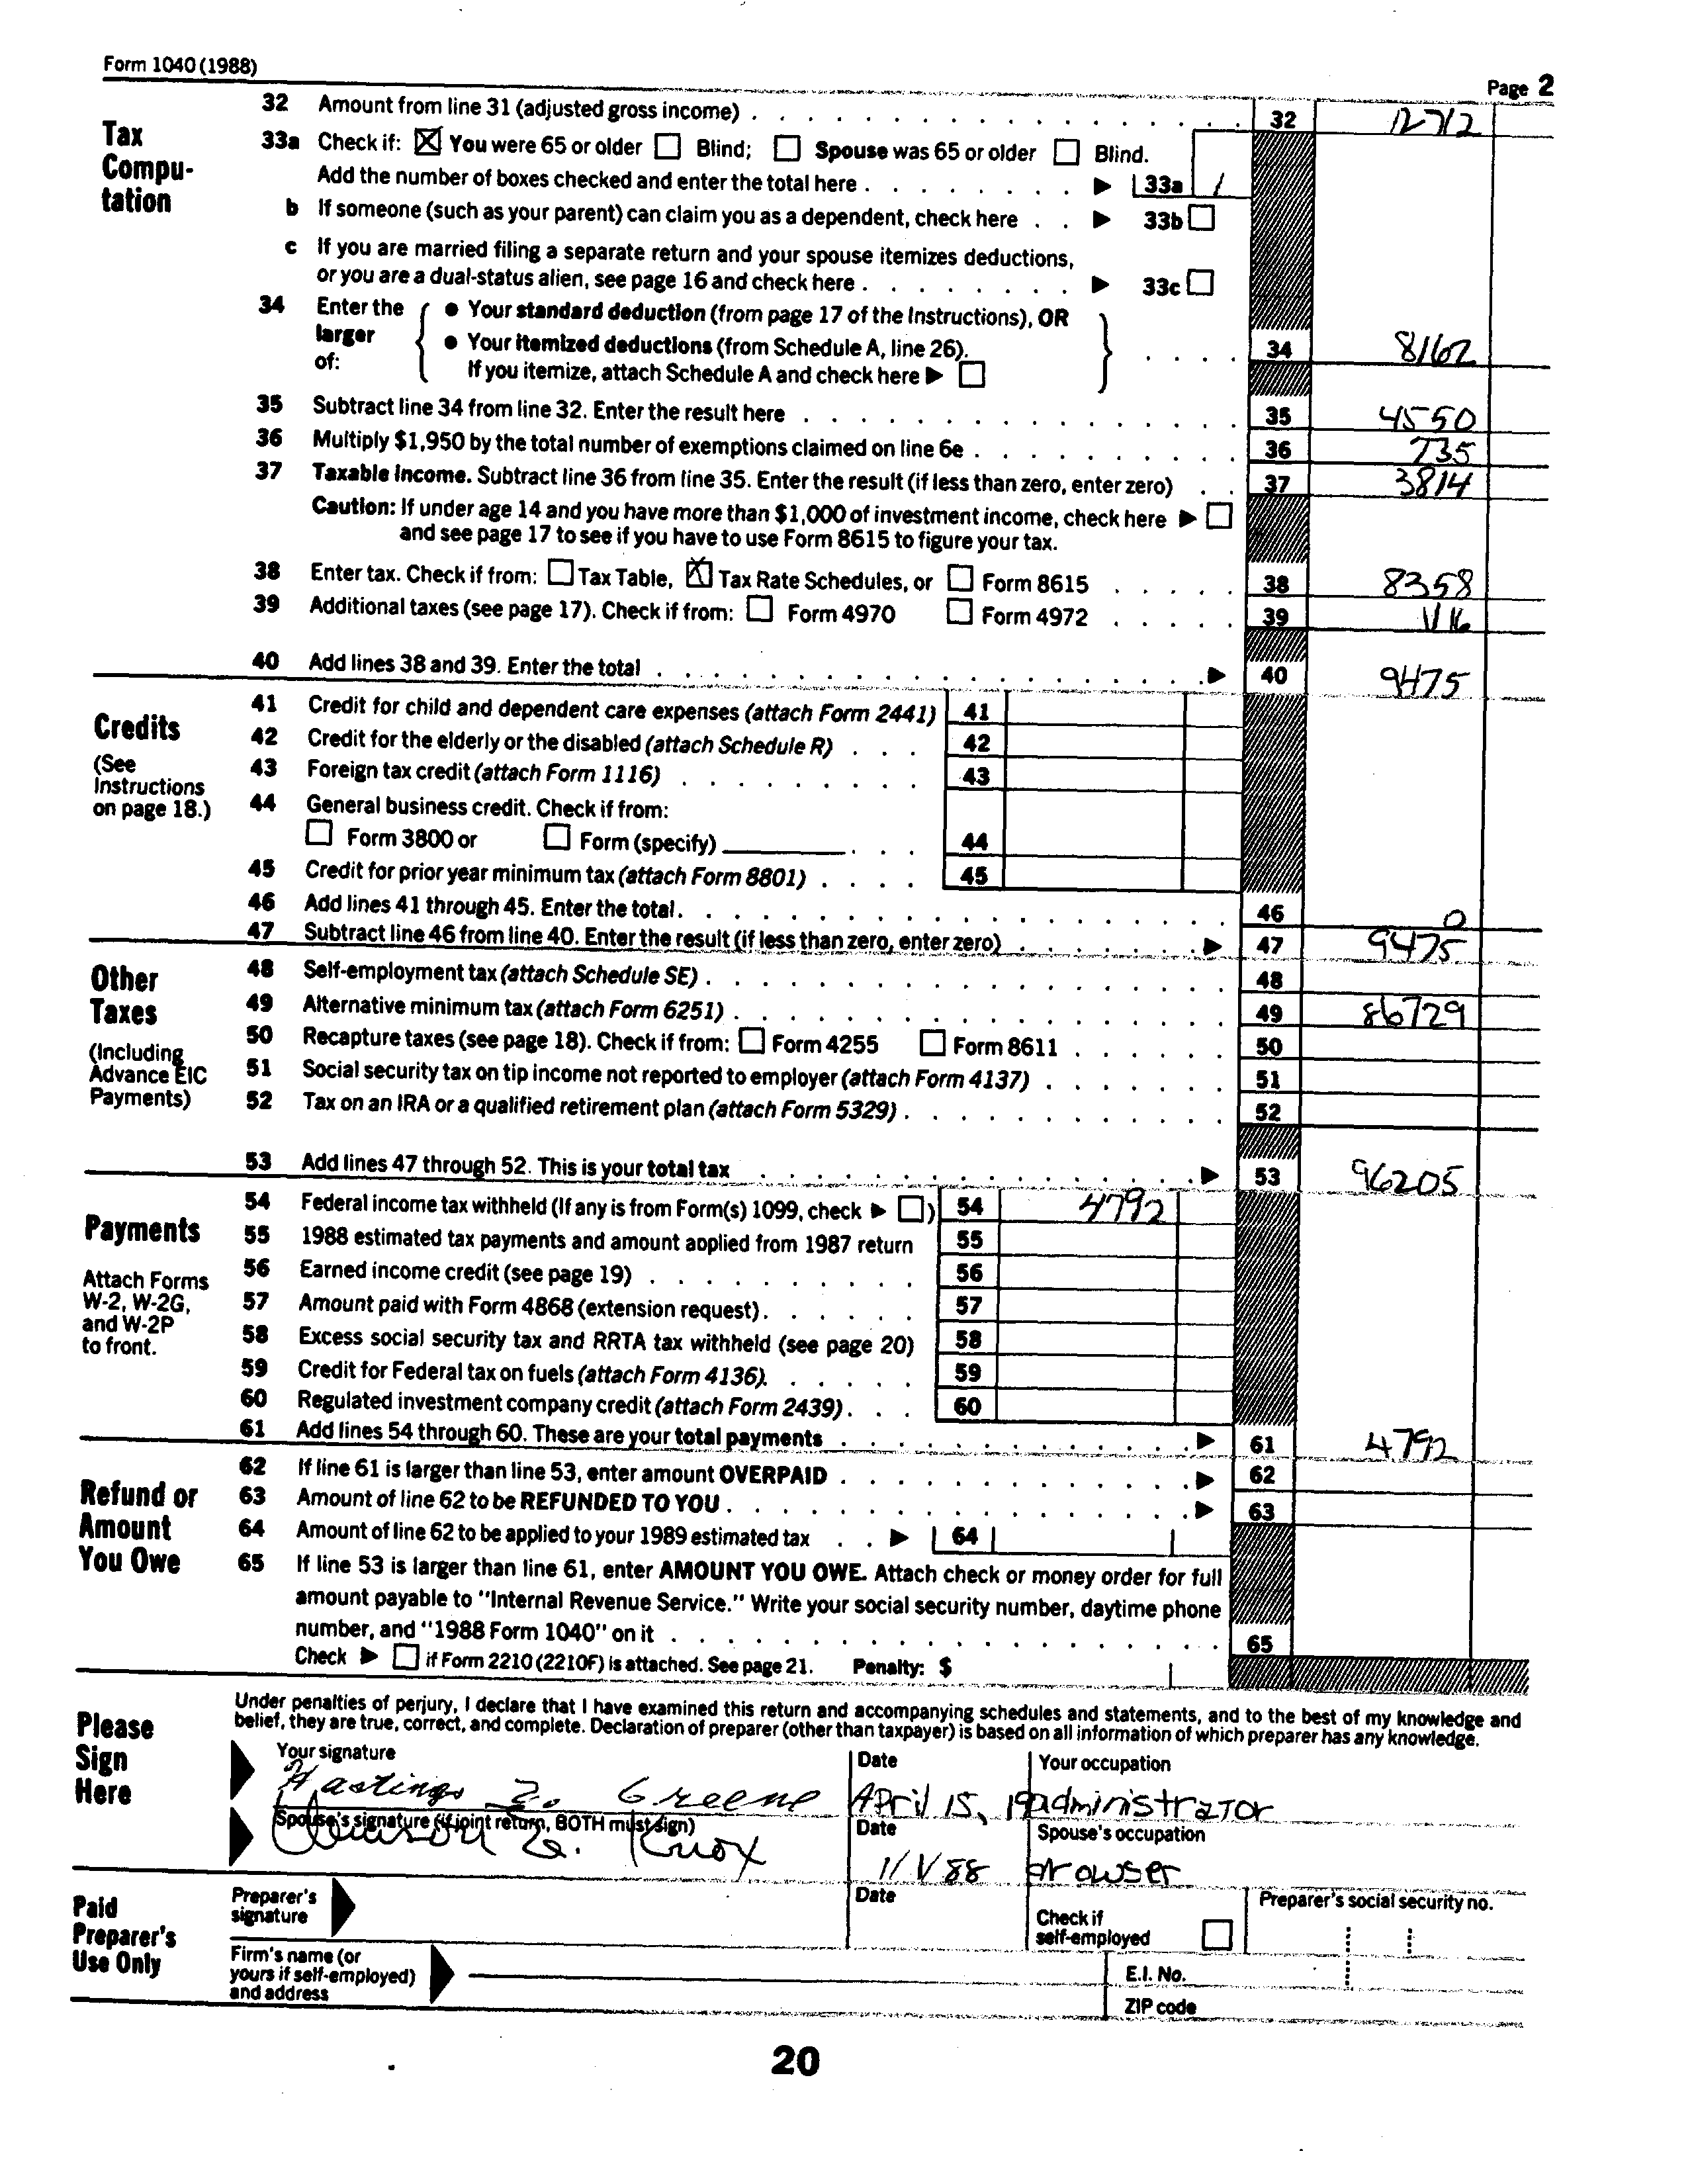 Form 1040 (1988)
Page 2
Tax Computation
32 Amount from line 31 (adjusted gross income) . . . 32 12712
33a Check if: ☒ You were 65 or older ☐ Blind; ☐ Spouse was 65 or older ☐ Blind.
Add the number of boxes checked and enter the total here . . . ▶ 33a 1
b If someone (such as your parent) can claim you as a dependent, check here . . ▶ 33b ☐
c If you are married filing a separate return and your spouse itemizes deductions,
or you are a dual-status alien, see page 16 and check here . . . ▶ 33c ☐
34 Enter the larger of: { ● Your standard deduction (from page 17 of the Instructions), OR
● Your itemized deductions (from Schedule A, line 26).
If you itemize, attach Schedule A and check here ▶ ☐ } . . . . 34 8162
35 Subtract line 34 from line 32. Enter the result here . . . 35 4550
36 Multiply $1,950 by the total number of exemptions claimed on line 6e . . . 36 735
37 Taxable income. Subtract line 36 from line 35. Enter the result (if less than zero, enter zero) . . 37 3814
Caution: If under age 14 and you have more than $1,000 of investment income, check here ▶ ☐
and see page 17 to see if you have to use Form 8615 to figure your tax.
38 Enter tax. Check if from: ☐ Tax Table, ☒ Tax Rate Schedules, or ☐ Form 8615 . . . 38 8358
39 Additional taxes (see page 17). Check if from: ☐ Form 4970 ☐ Form 4972 . . . 39
40 Add lines 38 and 39. Enter the total . . . ▶ 40 9475
Credits
(See Instructions on page 18.)
41 Credit for child and dependent care expenses (attach Form 2441) 41
42 Credit for the elderly or the disabled (attach Schedule R) . . . 42
43 Foreign tax credit (attach Form 1116) . . . 43
44 General business credit. Check if from:
☐ Form 3800 or ☐ Form (specify) . . . 44
45 Credit for prior year minimum tax (attach Form 8801) . . . . 45
46 Add lines 41 through 45. Enter the total . . . 46 0
47 Subtract line 46 from line 40. Enter the result (if less than zero, enter zero) . . . ▶ 47 9475
Other Taxes
(Including Advance EIC Payments)
48 Self-employment tax (attach Schedule SE) . . . 48
49 Alternative minimum tax (attach Form 6251) . . . 49 86729
50 Recapture taxes (see page 18). Check if from: ☐ Form 4255 ☐ Form 8611 . . . 50
51 Social security tax on tip income not reported to employer (attach Form 4137) . . . 51
52 Tax on an IRA or a qualified retirement plan (attach Form 5329) . . . 52
53 Add lines 47 through 52. This is your total tax . . . ▶ 53 96205
Payments
Attach Forms W-2, W-2G, and W-2P to front.
54 Federal income tax withheld (If any is from Form(s) 1099, check ▶ ☐) 54 4792
55 1988 estimated tax payments and amount applied from 1987 return 55
56 Earned income credit (see page 19) . . . 56
57 Amount paid with Form 4868 (extension request) . . . 57
58 Excess social security tax and RRTA tax withheld (see page 20) 58
59 Credit for Federal tax on fuels (attach Form 4136). . . . 59
60 Regulated investment company credit (attach Form 2439) . . . 60
61 Add lines 54 through 60. These are your total payments . . . ▶ 61 4792
Refund or Amount You Owe
62 If line 61 is larger than line 53, enter amount OVERPAID . . . ▶ 62
63 Amount of line 62 to be REFUNDED TO YOU . . . ▶ 63
64 Amount of line 62 to be applied to your 1989 estimated tax . . ▶ 64
65 If line 53 is larger than line 61, enter AMOUNT YOU OWE. Attach check or money order for full
amount payable to "Internal Revenue Service." Write your social security number, daytime phone
number, and "1988 Form 1040" on it . . . 65
Check ▶ ☐ if Form 2210 (2210F) is attached. See page 21. Penalty: $
Please Sign Here
Under penalties of perjury, I declare that I have examined this return and accompanying schedules and statements, and to the best of my knowledge and
belief, they are true, correct, and complete. Declaration of preparer (other than taxpayer) is based on all information of which preparer has any knowledge.
Your signature Date Your occupation
Hastings Greene April 15, 19 administrator
Spouse's signature (if joint return, BOTH must sign) Date Spouse's occupation
Knox
Paid Preparer's Use Only
Preparer's signature Date Check if self-employed ☐ Preparer's social security no.
Firm's name (or yours if self-employed) and address
E.I. No.
ZIP code
20